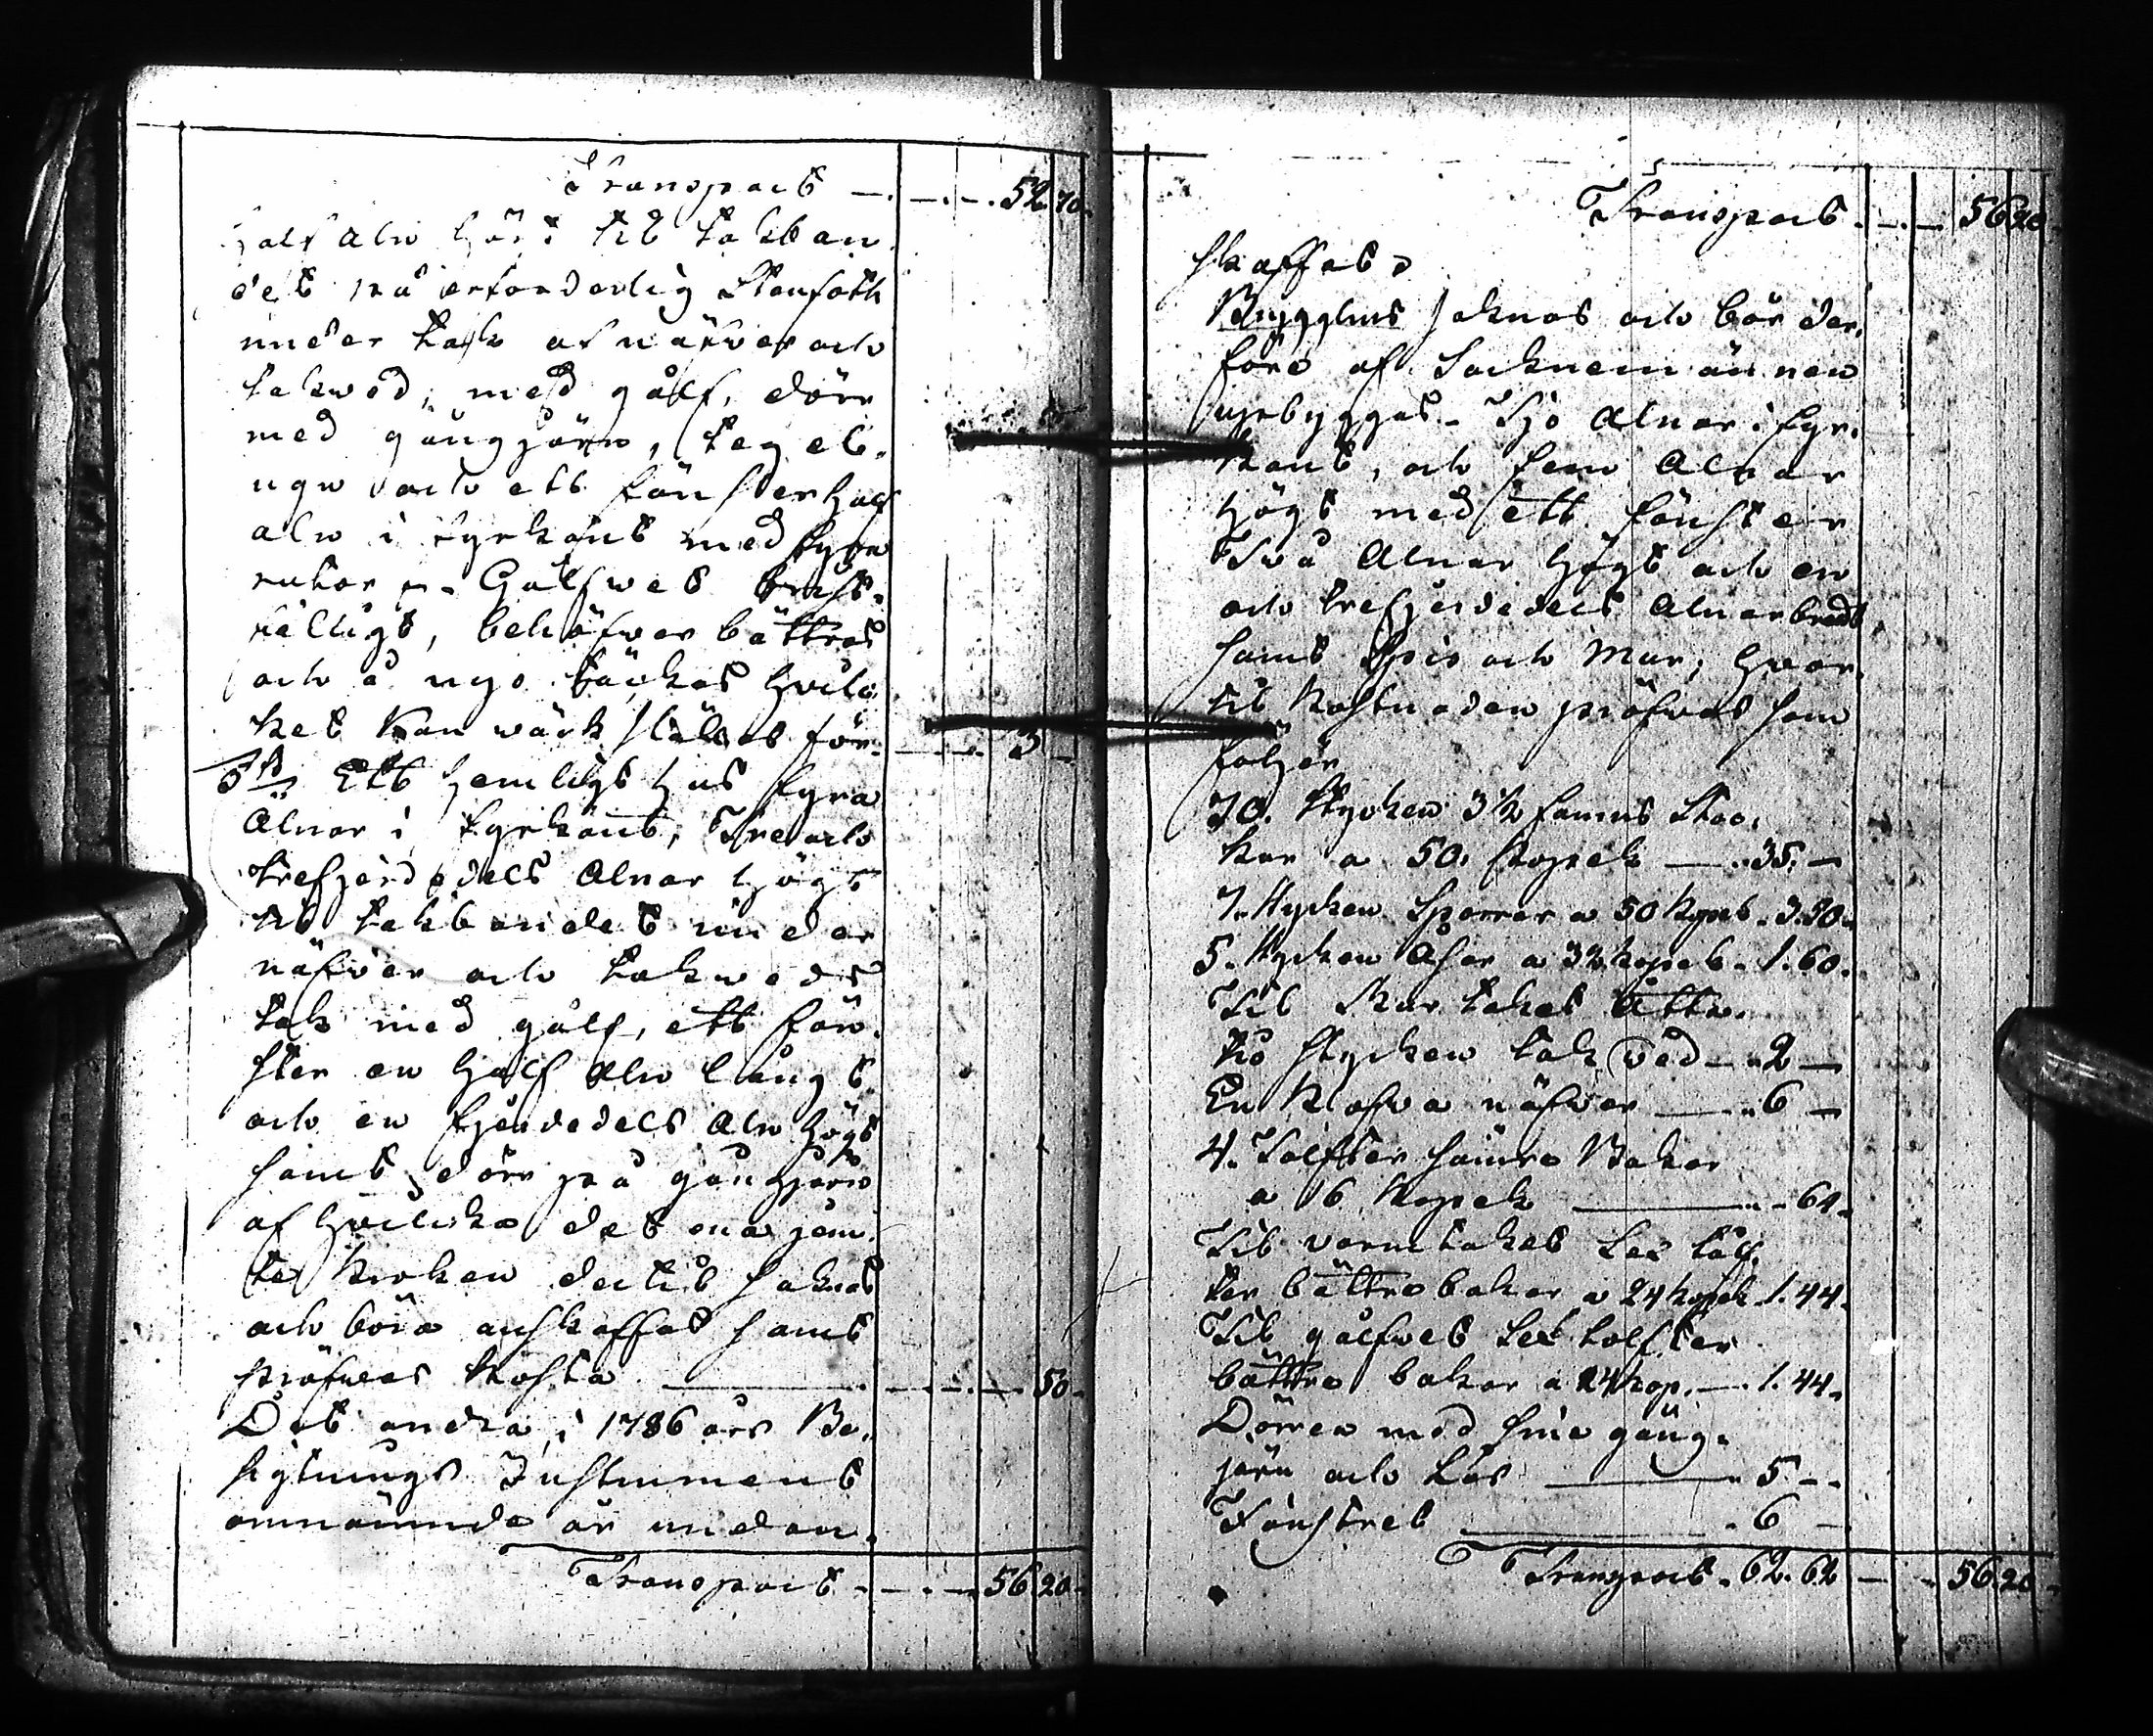 Transport — . — . — . 52. 70.
half aln högt til takban
det på erforderlig Stenfoth
under tak af näfver och
takwed, med gålf, dörr
med gångjärn, tegel-
ugn och ett fönster half
aln i fyrkant med fyra
rutor — Gålfwet bräck-
fälligt, behöfwer bättras
och å nyo täckas hwil-
ket kan wärkställas för — . — . 3 —
Ett hemligt hus fyra
Alnar i fyrkant, Tre och
trefjerdedels Alnar högt
til takbandet under
näfver och takweds
tak med gålf, ett fön-
ster en half Aln långt
och en fjerdedels Aln högt
samt dörr på gångjärn
af hwilka det ena jem-
te kroken dertil saknas
och böra anskaffas samt
pröfwes kosta — . — . — . 50.
Det andra, i 1786 års Be-
sigtnings Instrument
omnämnde är undan-
Transport . — . — . 56. 20.
Transport . — . — 56 20
skaffat.
Brygghus saknas och bör der-
före af Socknemännen
upbyggas. Tjo Alnar i fyr-
kant, och fem Alnar
högt med ett fönster
Twå Alnar högt och en
och trefjerdedels Alnar bredt
samt Spis och Mur, hwar-
til kostnaden pröfwas som
följer
70. Stycken 3½ famns Stoc-
kar a 50. kopek — . 35. —
7. Stycken Sparrar a 50 kopek . 3. 50.
5. Stycken Åsar a 32 kopek . 1. 60.
Til Skurtaket Åtta-
tio stycken takwed — . 2 —
En klafwa näfver — . 6 —
4. Tolfter sämre Bakar
a 16 kopek — . - 64.
Til varmtaket sex tolf-
ter bättre bakar a 24 kopek . 1. 44.
Til gålfwet sex tolfter
bättre bakar a 24 kop. — . 1. 44.
Dörren med sine gång-
järn och lås — . 5 — .
Fönstret — . 6 —
Transport . 62. 62 — . 56. 20.